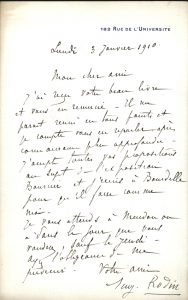 182 RUE DE L'UNIVERSITÉ
Lundi 3 Janvier 1910
Mon cher ami
J'ai reçu votre beau livre
et vous en remercie. Il me
parait réuni en tous points et
je compte vous en reparler après
connaissance plus approfondie.
J'accepte toutes vos propositions
au sujet de l'exposition
Bourdelle
pour qu'il fasse comme
moi.
Je vous attends à Meudon
dans le jour que vous
voudrez, sauf le jeudi
ayez l'obligeance de me
prévenir. Votre ami
Aug. Rodin